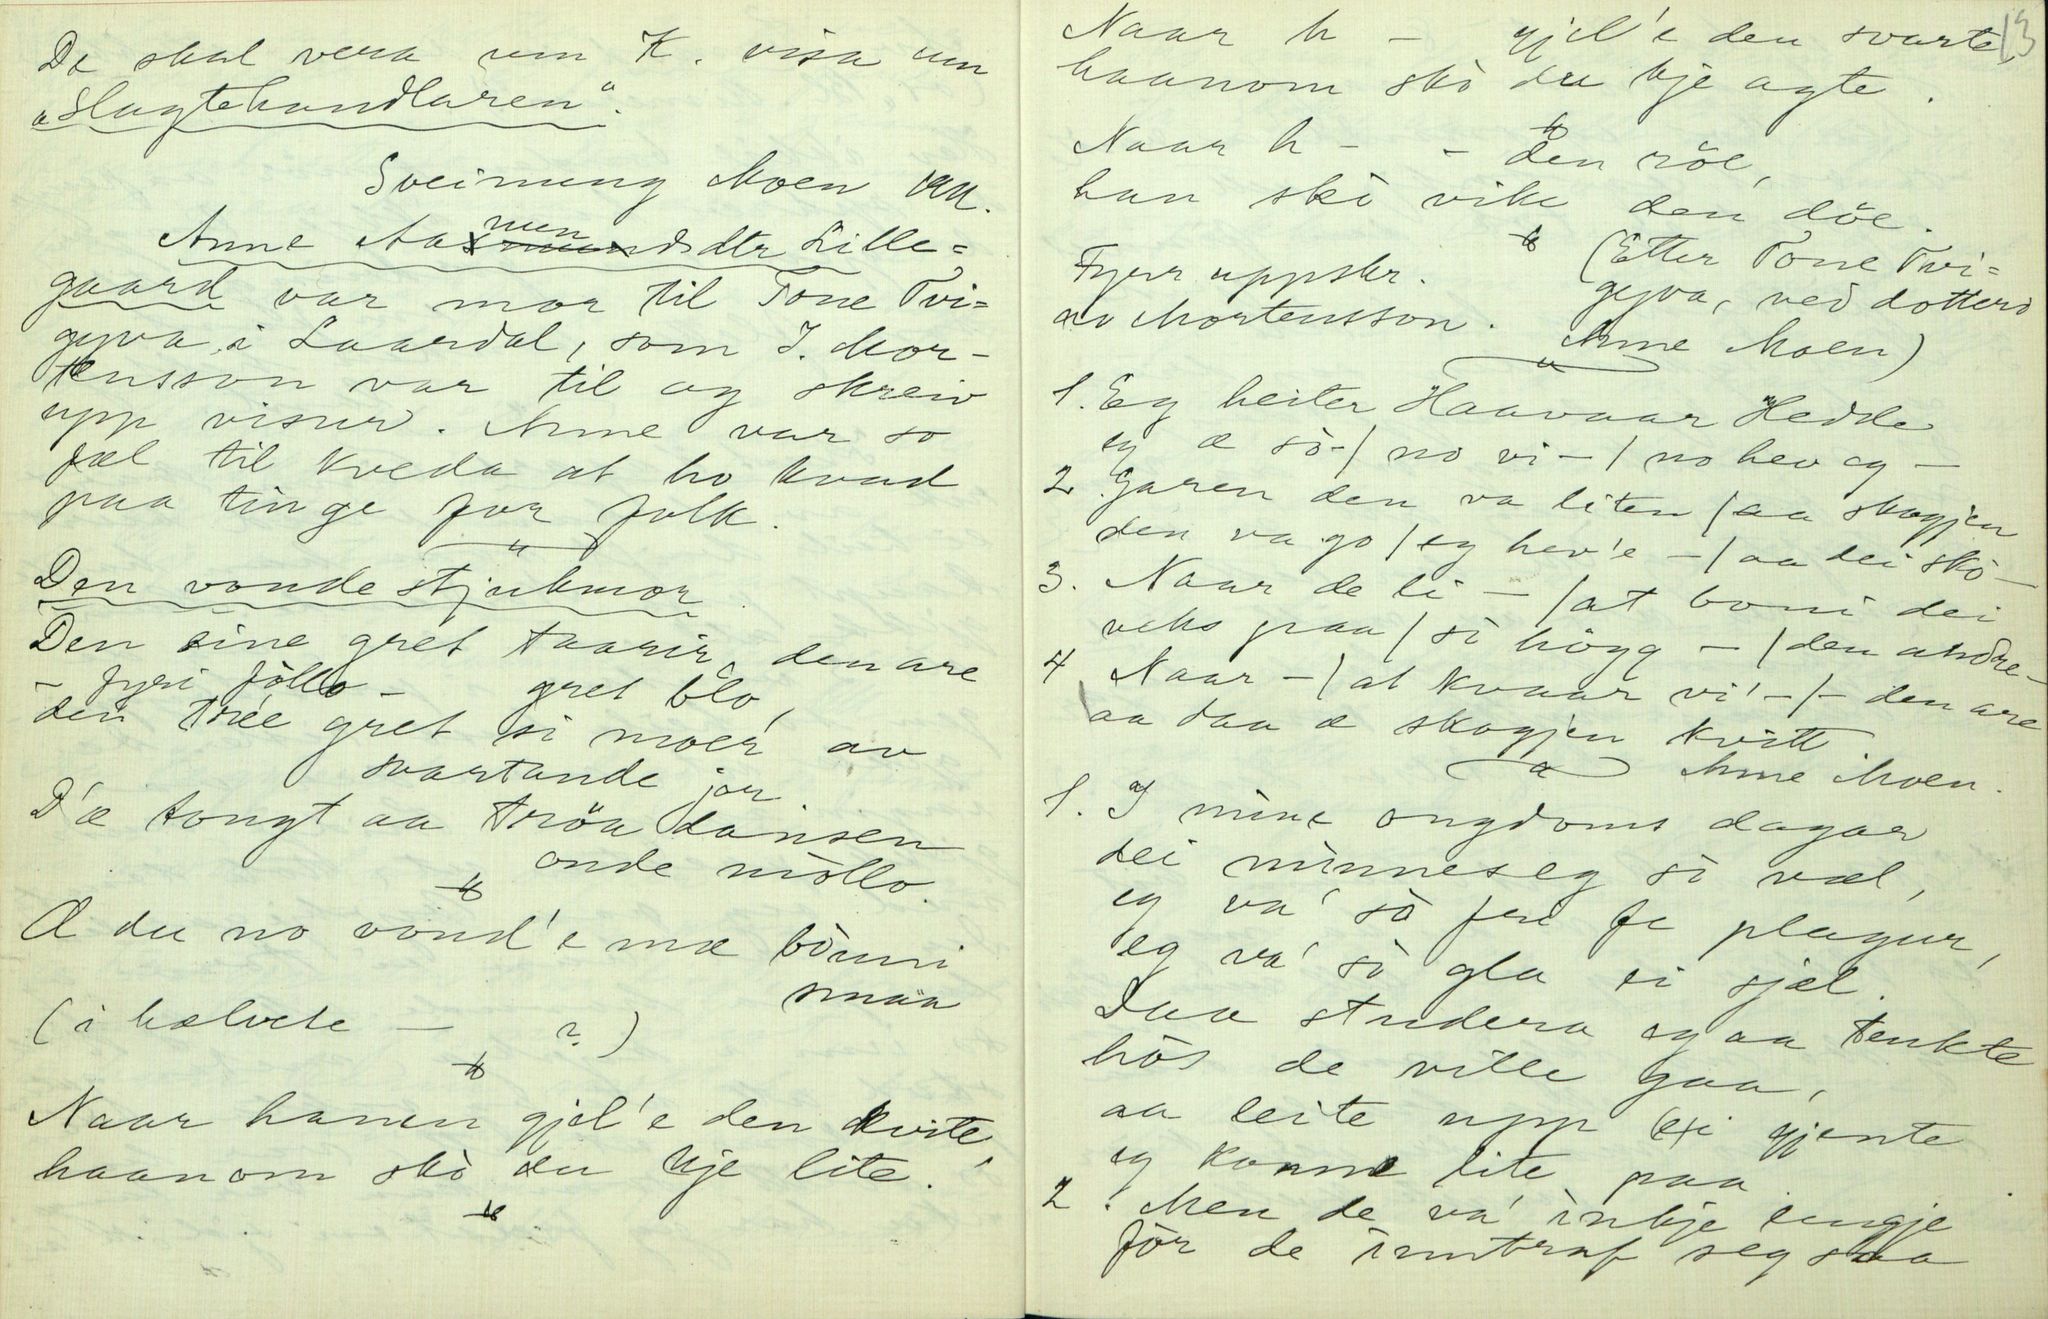 De skal vera um K. visa um
„Slagtehandlaren".
Sveinung Moen
Anne Aasmundsdtr Lille=
men
gaard var mor til Tone Tvi=
gyva i Laardal, som I. Mor-
tensson var til og skreiv
upp visur. Anne var so
fæl til kveda at ho kvad
paa tinge for folk.
Den vonde stjukmor
Den eine gret taarir, den are
- fyri föllo - gret blo,
den tree gret si moer av
svartande jor.
D'æ tongt aa tröa dansen
onde mòllo.
Æ du no vònd'e mæ bònni
smaa
(i hælvete - ?)
Naar hanen gjel'e den kvite,
haanom skò du kje lite.
13
Naar h - gjel'e den svarte,
haanom skò du kje agte.
Naar h - - den röe,
han skò vike den döe.
Fyrr uppskr.
av Mortensson.
(Etter Tone Tvi=
gyva, ved dotteri
Anne Moen)
1. Eg heiter Haavaar Hedde
eg æ sò - / no vi - / no hev eg -
2. Garen den va liten / aa skogjen
den va go / eg hev'e - / aa dei skò -
3. Naar de li - / at bonni dei
veks paa / sò högg - / den andre -
4 Naar - / at kvaar vi' - / - den are
aa daa æ skogjen kvitt.
Anne Moen.
1. I mine ongdoms dagar
dei minnes eg sò væl,
eg va' sò fri fe plagur,
eg va' sò gla ei sjæl.
Daa studera eg aa tenkte
hòs de ville gaa,
aa leite upp ei gjente
eg konne lite paa.
2. Men de va' inkje lengje
för de inntraf seg saa